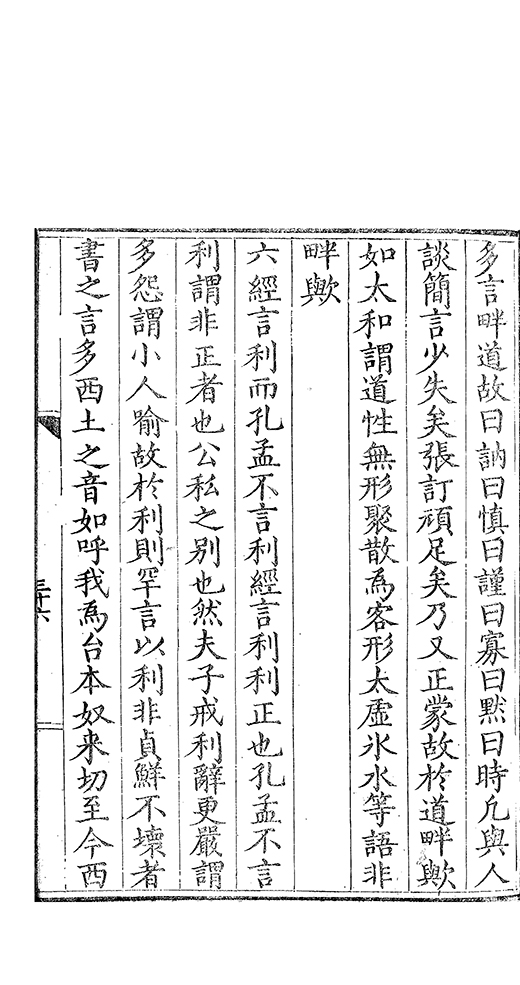 多言畔道故曰訥曰慎曰謹曰寡曰黙曰時凢與人
談簡言少失矣張訂頑足矣乃又正蒙故扵道畔歟
如太和謂道性無形聚散為客形太虚氷水等語非
畔歟
六經言利而孔孟不言利經言利利正也孔孟不言
利謂非正者也公私之别也然夫子戒利辭更嚴謂
多怨謂小人喻故扵利則罕言以利非貞鮮不壞者
書之言多西土之音如呼我為台本奴来切至今西
三十六